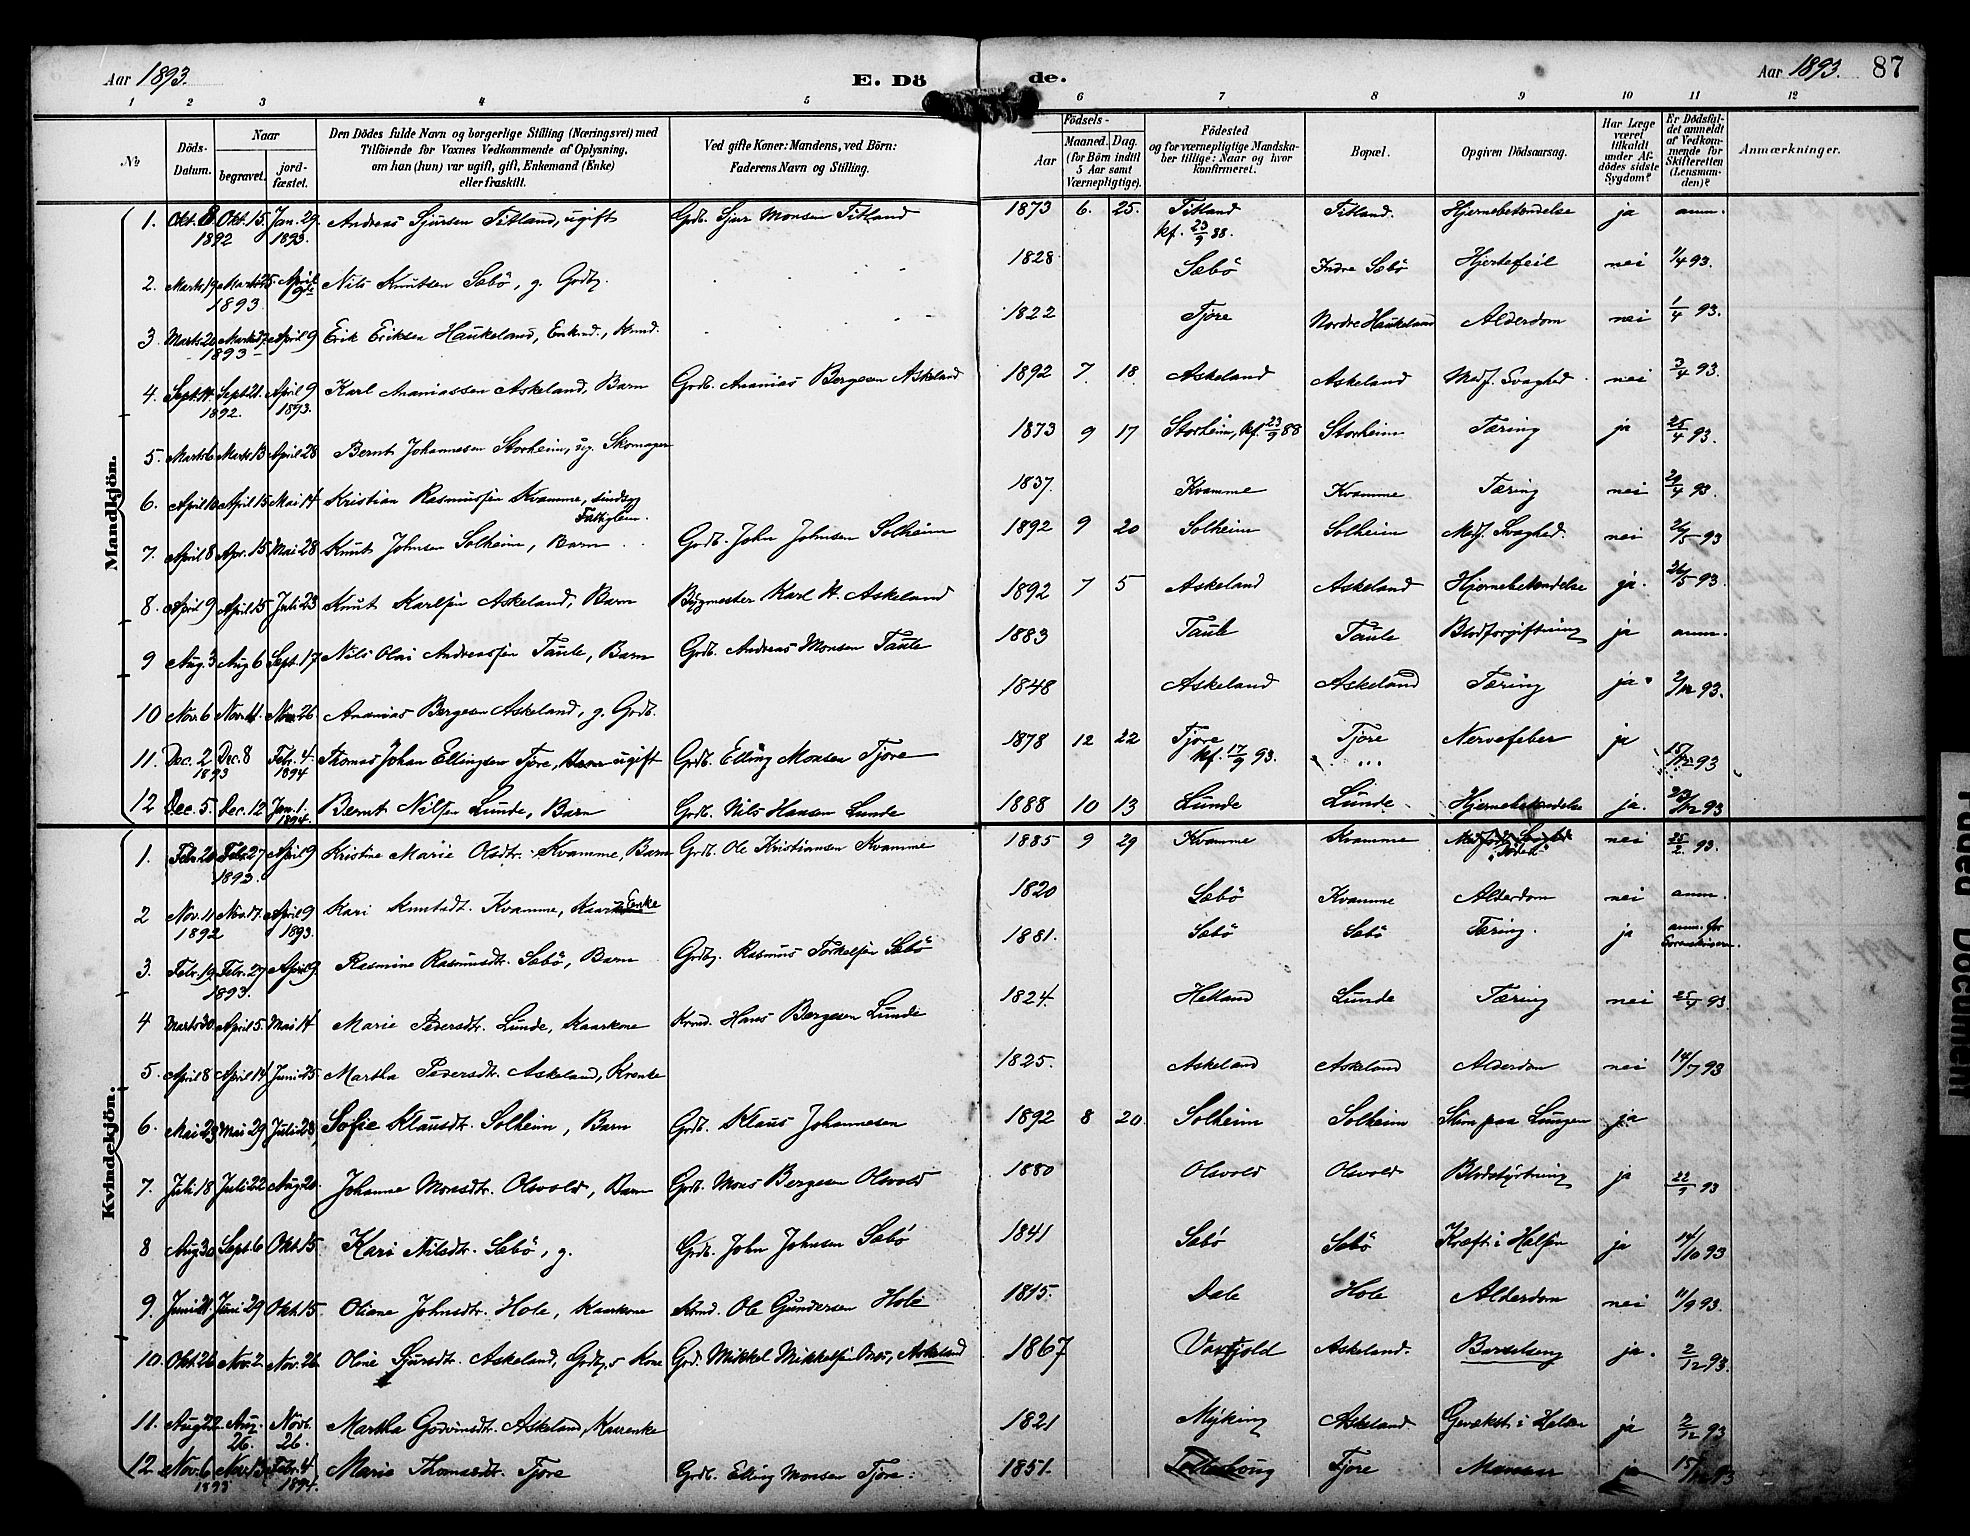 Aar 1893. E. Dö de. Aar 1893. 87
1 2 3 4 5 6 7 8 9 10 11 12
No
Döds-Datum.
Naar
begravet.
jord-fæstet.
Den Dödes fulde Navn og borgerlige Stilling (Næringsvei) med
Tilföiende for Voxnes Vedkommende af Oplysning,
om han (hun) var ugift, gift, Enkemand (Enke)
eller fraskilt.
Ved gifte Koner: Mandens, ved Börn:
Faderens Navn og Stilling.
Födsels-
Aar
Maaned. Dag.
(for Börn indtil
5 Aar samt
Værnepligtige).
Födested
og for værnepligtige Mandska-
ber tillige: Naar og hvor
konfirmeret.
Bopæl.
Opgiven Dödsaarsag.
Har Læge
været
tilkaldt
under Af-
dödes sidste
Sygdom?
Er Dödsfal-
det anmeldt
af Vedkom-
mende for
Skifteretten
(Lensman-
den)?
Anmærkninger.
Mandkjön.
1. Okt. 8 Okt. 15 Jan. 29 Andreas Sjursen Titland, ugift Grdb. Sjur Monsen Titland 1873 6. 25. Titland Titland. Hjernebetændelse ja anm.
1892 1893. kf. 23/9 88.
2. Marts 19 Marts 25 April 9de Nils Knutsen Sæbö, g. Grdb. 1828 Sæbö Indre Sæbö Hjertefeil nei 1/4 93.
1893
3 Marts 20 Marts 27 April 9 Erik Eriksen Haukeland, Enkmd., Krmd. 1822 Tjore Nordre Haukeland Alderdom nei 1/4 93.
1893
4. Sept. 14. Sept. 21. April 9 Karl Ananiassen Askeland, Barn Grdb. Ananias Bergesen Askeland 1892 7 18. Askeland Askeland Medf. Svaghed nei 2/4 93.
1892. 1893.
5. Marts 6 Marts 13 April 28 Bernt Johannesen Storheim, ug. Skomager 1873 9 17 Storheim, kf. 23/9 88 Storheim Tæring ja 25/4 93.
6. April 10 April 15 Mai 14 Kristian Rasmussen Kvamme, sindsyg 1837. Kvamme Kvamme Tæring nei 29/4 93.
Fattiglem.
7. April 8 Apr. 15 Mai 28 Knut Johnsen Solheim, Barn Grdb. John Johnsen Solheim 1892 9 20 Solheim Solheim Medf. Svaghed. nei 26/5 93
8. April 9 April 15 Juli 23 Knut Karlsen Askeland, Barn Bygmester Karl H. Askeland 1892 7 5 Askeland Askeland Hjernebetændelse ja. 26/5 93.
9 Aug. 3 Aug 6 Sept. 17 Nils Olai Andreassen Taule, Barn Grdb. Andreas Monsen Taule 1883 Taule Taule Blodforgiftning ja anm.
10 Nov. 6 Nov. 11. Nov. 26 Ananias Bergesen Askeland, g. Grdb. 1848 Askeland Askeland Tæring ja. 2/12 93.
11. Dec. 2 Dec. 8 Febr. 4 Thomas Johan Ellingsen Tjore, ugift Grdb. Elling Monsen Tjore 1878 12 22 Tjore Tjore Nervefeber ja 15/12 93
1893 1894 kf. 17/9 93.
12 Dec. 5 Dec. 12 Jan. 1. Bernt Nilsen Lunde, Barn Grdb. Nils Hansen Lunde 1888 10 13 Lunde Lunde Hjernebetændelse ja. 23/12 93
1894.
Kvindekjön.
1. Febr. 20 Febr. 27 April 9 Kristine Marie Olsdtr. Kvamme, Barn Grdb. Ole Kristiansen Kvamme 1885 9 29 Kvamme Kvamme nei 25/2 93.
1893.
2 Nov. 11 Nov. 17. April 9 Kari Knutsdt. Kvamme, Enke 1820 Sæbö Kvamme Alderdom nei anm.
1892 1893.
3. Febr. 19 Febr. 27 April 9 Rasmine Rasmusdtr. Sæbö, Barn Grdb. Rasmus Torkelsen Sæbö 1881. Sæbö Sæbö Tæring. ja anm. for
1893. Sorenskriveren.
4 Marts 30. April 5. Mai 14 Marie Pedersdtr. Lunde, Kaarkone Krmd. Hans Bergesen Lunde 1824. Hetland Lunde Tæring nei 25/4 93.
5. April 8 April 14 Juni 25 Martha Pedersdtr. Askeland, Krenke 1825. Askeland Askeland Alderdom nei 14/7 93
6. Mai 23 Mai 29 Juli 23, Sofie Klausdt. Solheim, Barn Grdb. Klaus Johannesen 1892 8 20. Solheim Solheim Slim paa Lungen ja.
7. Juli 18 Juli 22 Aug. 20 Johanne Monsdtr. Olsvold, Barn Grdb. Mons Bergesen Olsvold 1880 Olsvold Olsvold Blodstyrtning ja 22/9 93
8 Aug 30 Sept. 6 Okt. 15 Kari Nilsdtr. Sæbö, g. Grdb. John Johnsen Sæbö 1841 Sæbö Sæbö Kræft i Halsen ja 14/10 93
9. Juni 21. Juni 29 Okt. 15 Oliane Johnsdtr. Hole, Kaarkone Krmd. Ole Gundersen Hole 1815. Dale Hole Alderdom nei 11/9 93.
10. Okt. 26 Nov. 2. Nov. 26 Oline Sjursdtr. Askeland, Grdbs Kone Grd. Mikkel Mikkelsen Askeland 1867 Askeland. Barselseng ja. 2/12 93.
11. Aug 22 Aug. Novb. Martha Godvinsdtr. Askeland, Kaarenke 1821 Myking Askeland. Gevækst i Halsen ja 2/12 93
26. 26.
12. Nov. 6 Nov. 13 Febr. 4 Marie Thomasdtr. Tjore Grdb. Elling Monsen Tjore. 1851. Tjore ja 15/12 93
1893 1894.
Faded Document